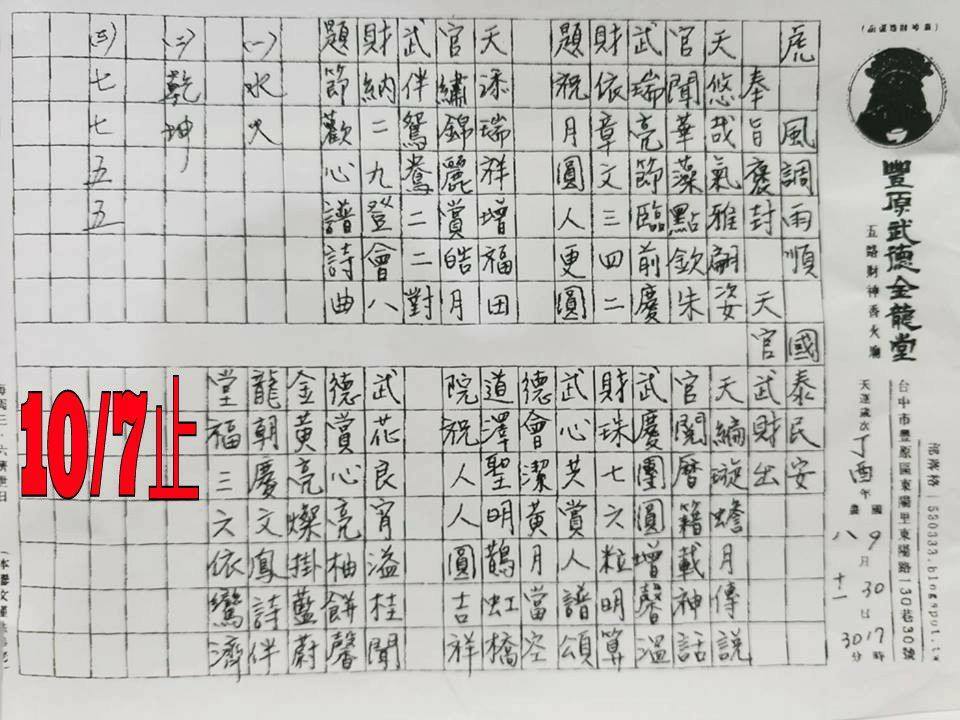 豐原武德金龍堂
五路財神香火鼎
台中市豐原區東陽里東陽路130巷30號
550333.blogspot.tw
天運歲次丁酉年 國9月30日17時
農八 十一 30分
虎 風調雨順 國泰民安
奉旨褒封 天官武財出
天悠哉氣雅翩姿
官聞華藻點欽朱
武瑞亮節臨前慶
財依章文三四二
題祝月圓人更圓
天編璇蟾月傳說
官閱曆籍載神話
武慶團圓增馨溫
財珠七六粒明算
武心共賞人譜頌
德會潔黃月當空
道澤聖明鵲虹橋
院祝人人圓吉祥
天添瑞祥增福田
官繡錦麗賞皓月
武伴鴛鴦二二對
財納二九登會八
題節歡心譜詩曲
武花良宵溢桂聞
德賞心亮柚餅馨
金黃亮燦掛藍蔚
龍朝慶文鳳詩伴
堂福三六依鸞濟
(一) 水火
(二) 乾坤
(三) 七七五五
10/7止